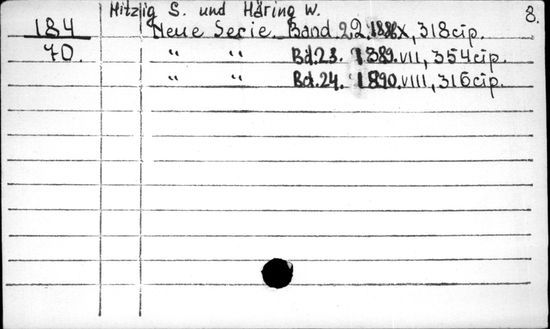 Hitzig S. und Häring W. 8.
184 Neue Serie. Band 22. X, 318 cip.
70. " " Bd. 23. 1889. VII, 354 cip.
" " Bd. 24. 1890. VIII, 316 cip.